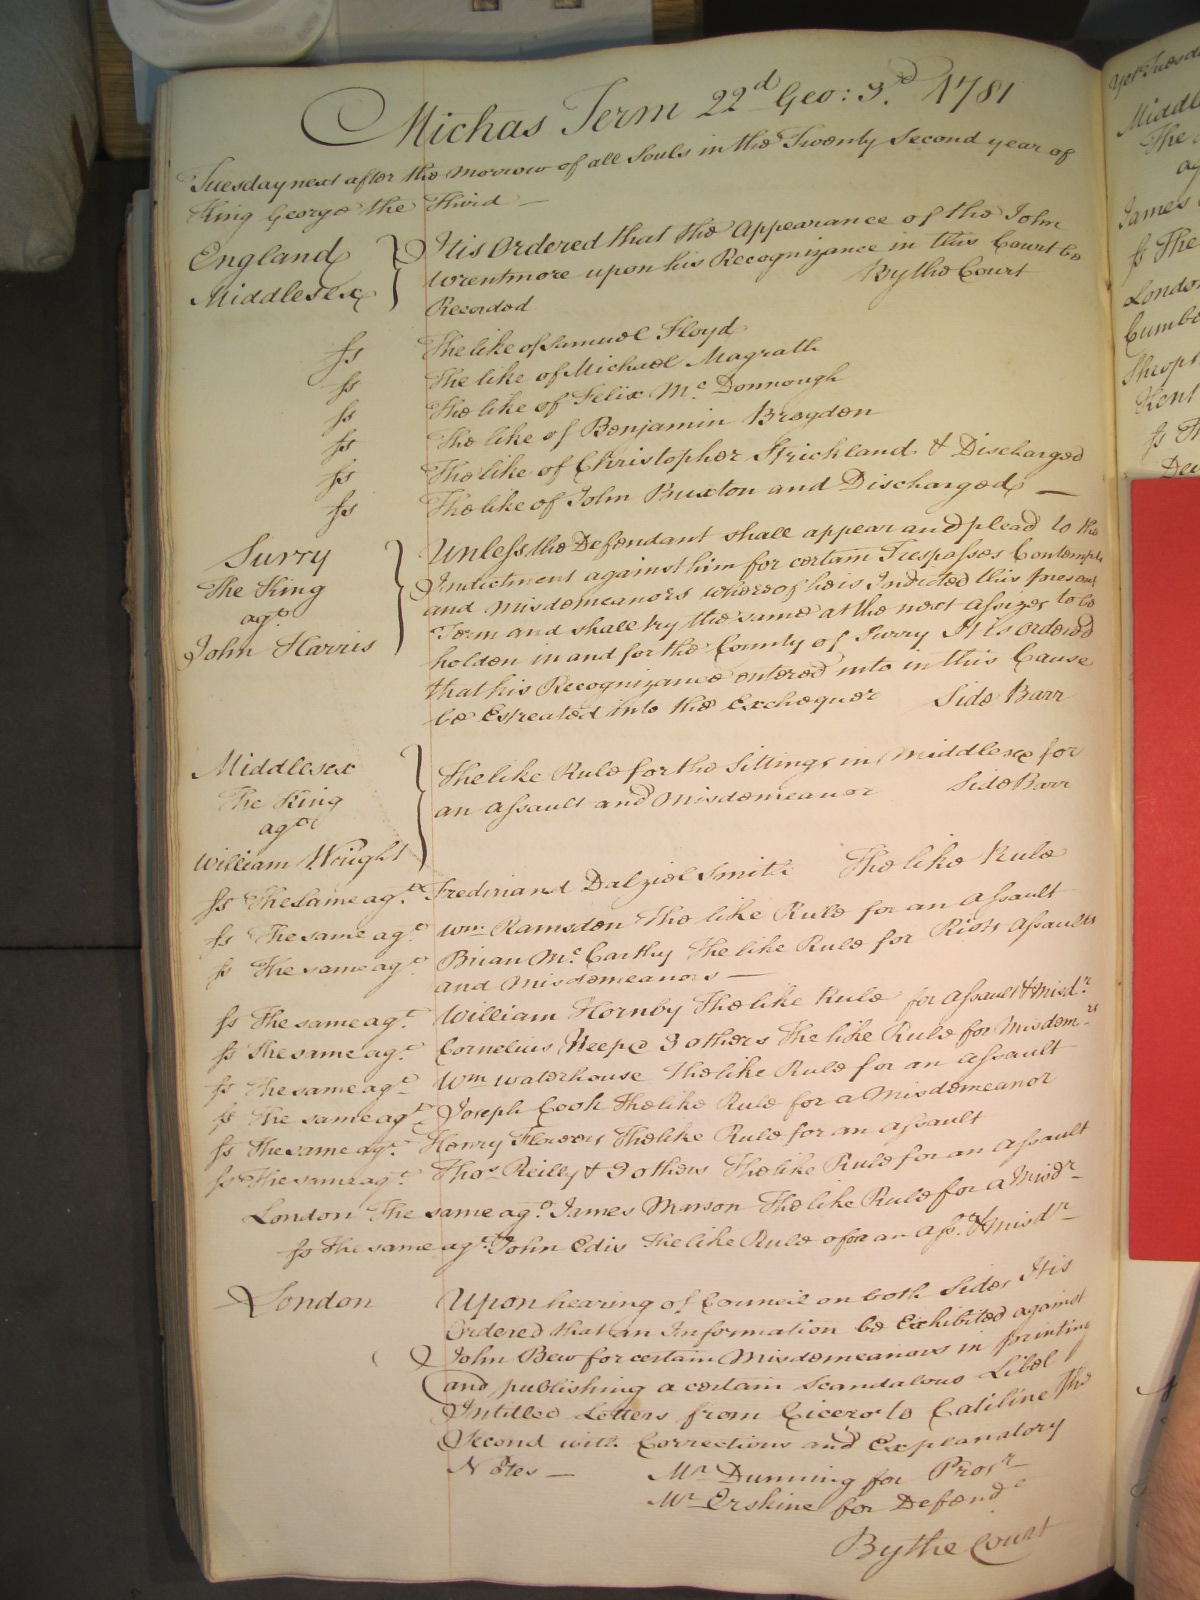 Michas Term 22d Geo: 3.d 1781
Tuesday next after the Morrow of all Souls in the Twenty Second year of
King George the Third —
England
Middlesex
It is Ordered that the Appearance of the John
Wrentmore upon his Recognizance in this Court be
Recorded By the Court
ss The like of Samuel Floyd
ss The like of Michael Magrath
ss The like of Felix Mc Donnough
ss The like of Benjamin Brogden
ss The like of Christopher Strickland & Discharged
ss The like of John Buxton and Discharged —
Surry
The King
agt
John Harris
Unless the Defendant shall appear and plead to the
Indictment against him for certain Trespasses Contempts
and Misdemeanors whereof he is Indicted this present
Term and shall try the same at the next Assizes to be
holden in and for the County of Surry It is Ordered
that his Recognizance entered into in this Cause
be Estreated into the Exchequer Side Barr
Middlesex
The King
agt
William Wright
The like Rule for the Sittings in Middlesex for
an Assault and Misdemeanor Side Barr
ss The same agt Fredinand Dalziel Smith The like Rule
ss The same agt Wm Ramsden The like Rule for an Assault
ss The same agt Brian Mc Carthy The like Rule for Riots Assaults
and Misdemeanors —
ss The same agt William Hornby The like Rule for Assault & Misdr
ss The same agt Cornelius Keepe 3 others The like Rule for Misdemrs
ss The same agt Wm Waterhouse The like Rule for an Assault
ss The same agt Joseph Cook The like Rule for a Misdemeanor
ss The same agt Henry Flowers The like Rule for an Assault
ss The same agt Thos Reilly & 3 others The like Rule for an Assault
London The same agt James Marson The like Rule for a Misdr
ss The same agt John Edis The like Rule for an Asst & Misdr
London
Upon hearing of Council on both Sides It is
Ordered that an Information be Exhibited against
John Bew for certain Misdemeanors in printing
and publishing a certain Scandalous Libel
Intitled Letters from Cicero to Catiline the
Second with Corrections and Explanatory
Notes — Mr Dunning for Prosr
Mr Erskine for Defendt
By the Court